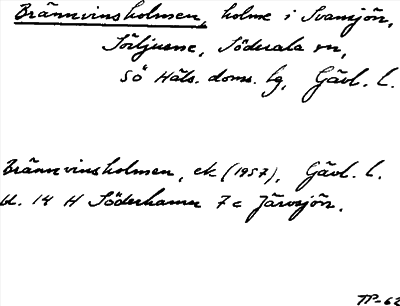 Brännvinsholmen, holme i Svansjön,
Sörljusne, Söderala sn,
SÖ Häls. doms. lg, Gävl. l.
Brännvinsholmen, ek (1957), Gävl. l.
bl. 14 H Söderhamn 7 c Järvsjön.
TP-62